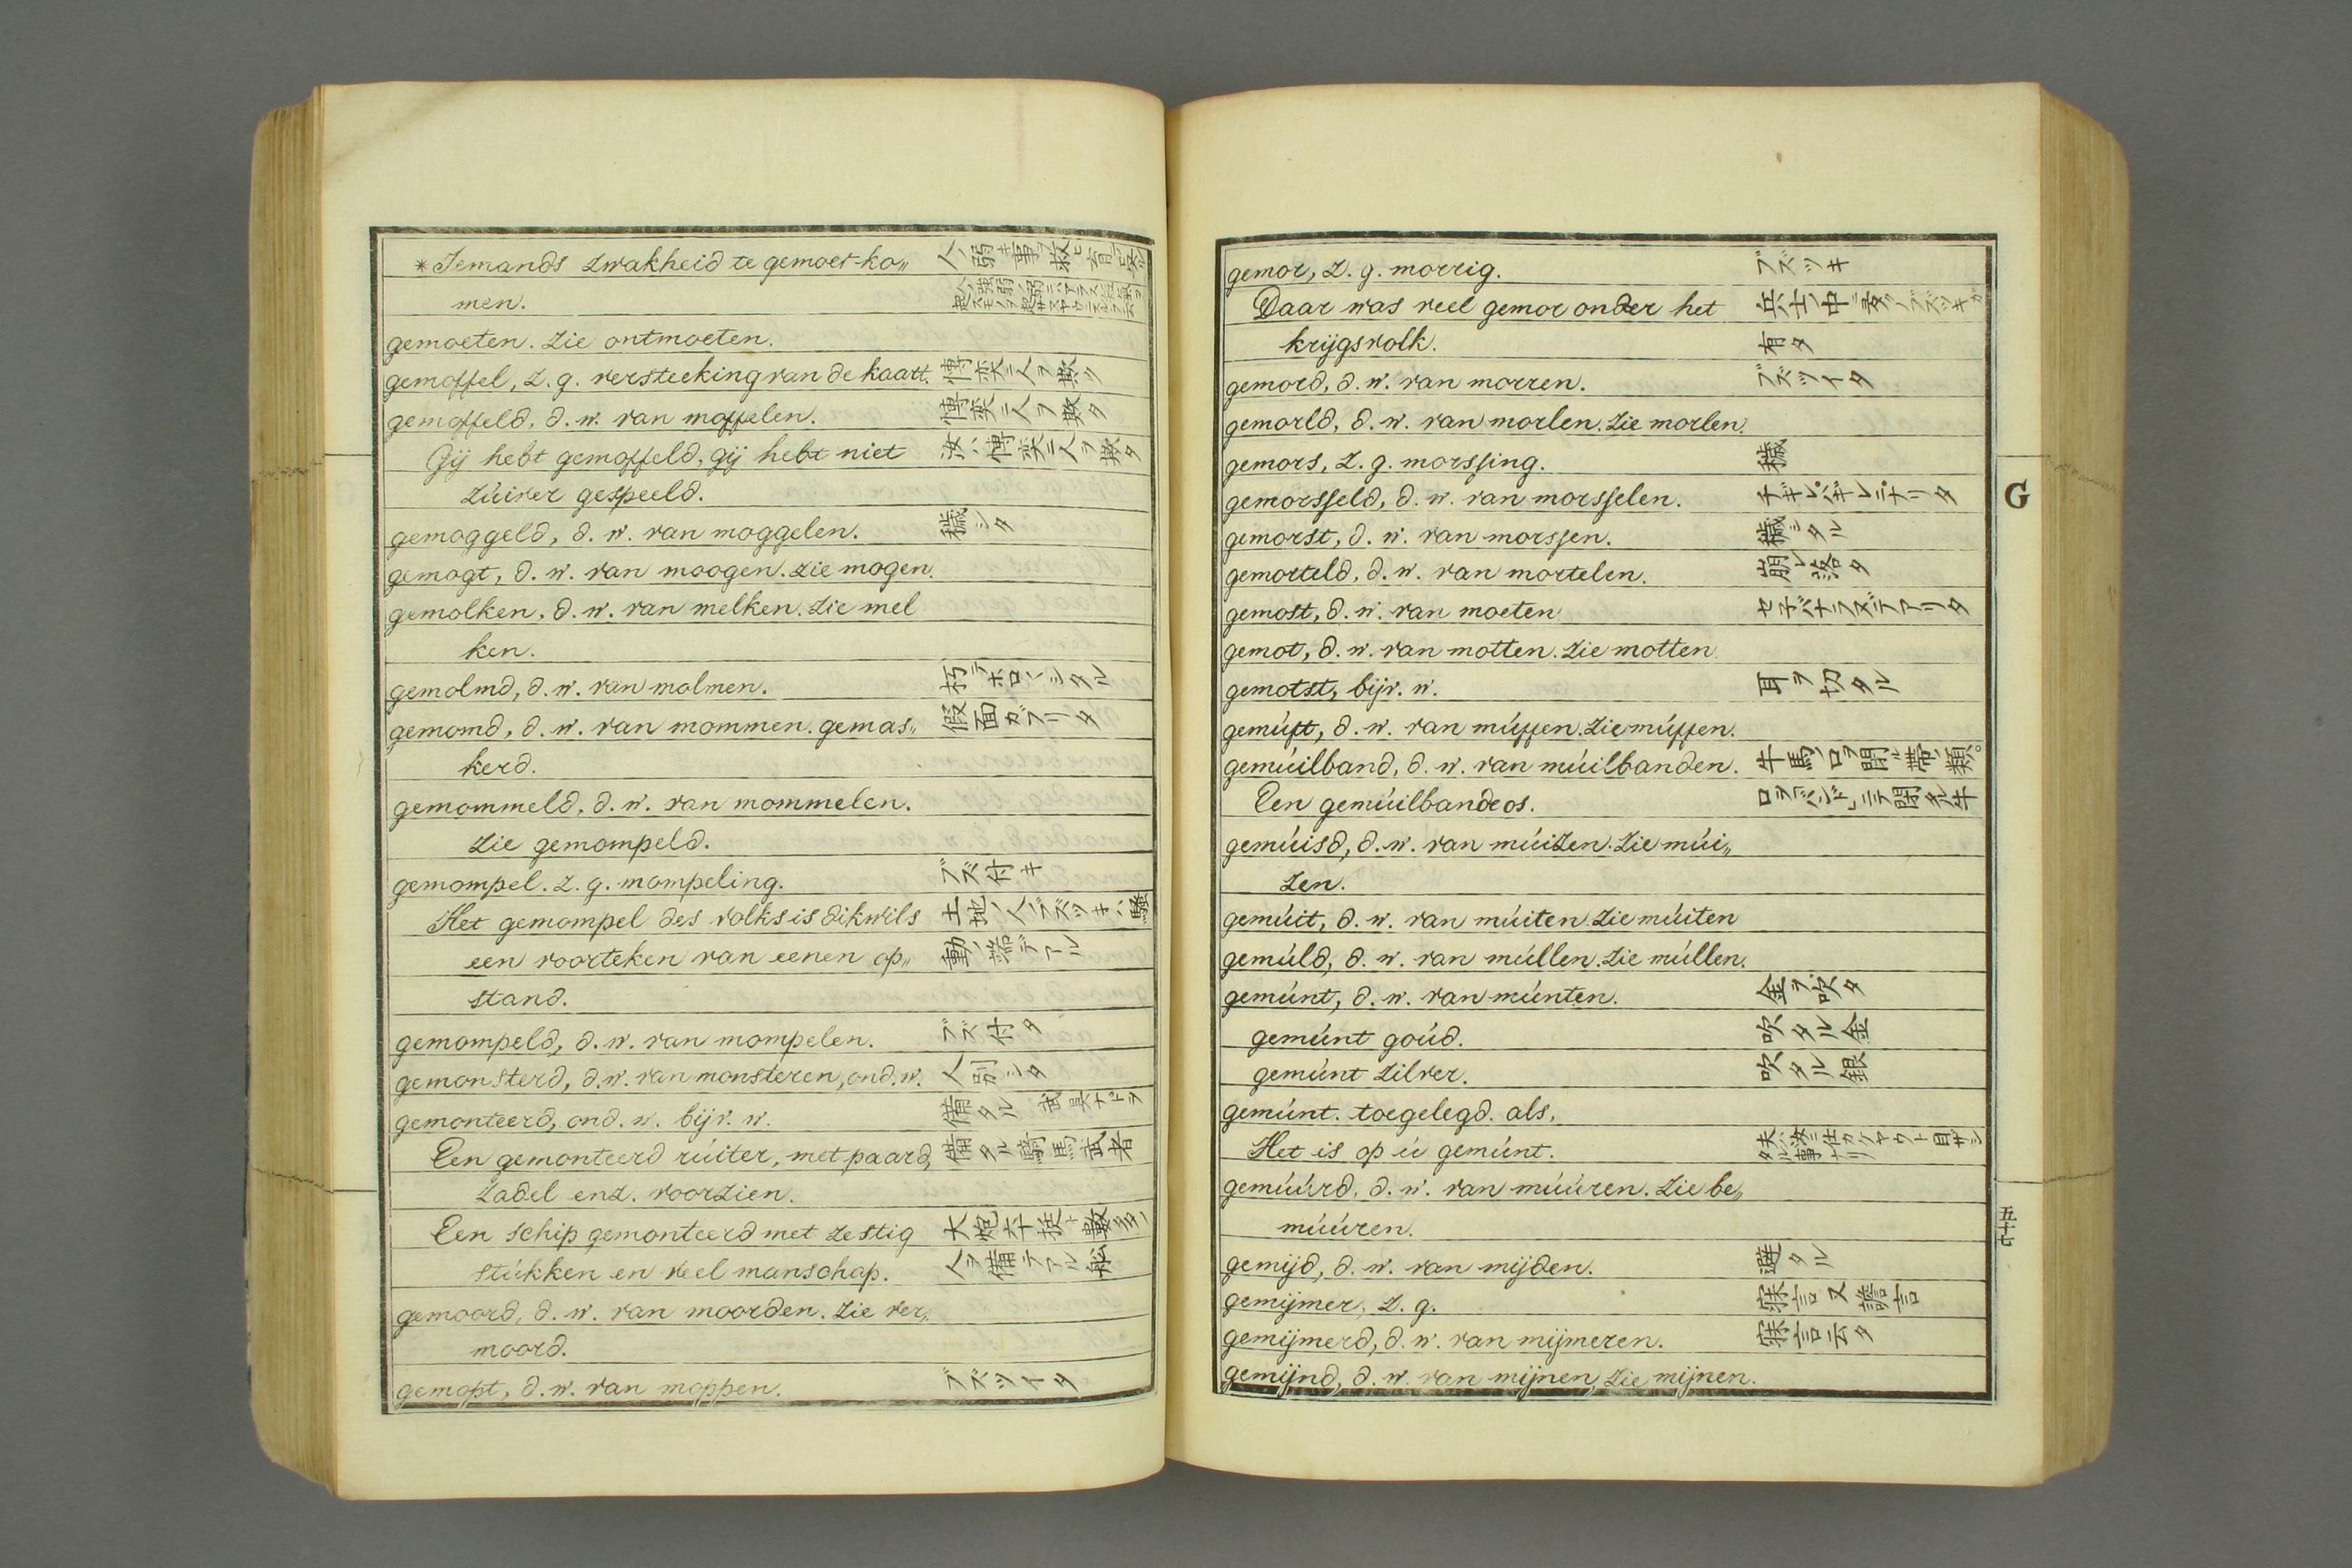 *Iemands zwakheid te gemoet-ko„ 人ノ弱キ事ヲ救ヒ
men.
gemoeten. Zie ontmoeten.
gemoffel, z. g. versteeking van de kaart. 博奕ニ人ヲ欺ク
gemoffeld, d. w. van moffelen. 博奕ニ人ヲ欺タ
Gij hebt gemoffeld, gij hebt niet 汝ハ博奕ニ人ヲ欺タ
zúiver gespeeld.
gemoggeld, d. w. van moggelen. 穢シタ
gemogt, d. w. van moogen. zie mogen.
gemolken, d. w. van melken. Zie mel
ken.
gemolmd, d. w. van molmen. 朽テホロ〱シタル
gemomd, d. w. van mommen. gemas„ 假面ガブリタ
kerd.
gemommeld, d. w. van mommelen.
zie gemompeld.
gemompel. z. g. mompeling. ブズ付キ
Het gemompel des volks is dikwils 土地ノ人ノブズツキハ騒
een voorteken van eenen op„ 動ノ端デアル
stand.
gemompeld, d. w. van mompelen. ブズ付タ
gemonsterd, d. w. van monsteren, ond. w. 人別シタ
gemonteerd, ond. w. bijv. w. 備タル 武具ナドヲ
Een gemonteerd rúiter, met paard, 備タル騎馬武者
zadel enz. voorzien.
Een schip gemonteerd met zestig 大炮六十挺ト數多ノ
stúkken en veel manschap. 人ヲ備テアル船
gemoord, d. w. van moorden. Zie ver„
moord.
gemopt, d. w. van moppen. ブズツイタ
gemor, z. g. morrig. ブズツキ
Daar was veel gemor onder het 兵士ノ中ニ多クノブズツキガ
krijgsvolk. 有タ
gemord, d. w. van morren. ブズツイタ
gemorld, d. w. van morlen. Zie morlen.
gemors, z. g. morssing. 穢
gemorsseld, d. w. van morsselen. チギレ〱ニナリタ
gemorst, d. w. van morssen. 穢シタル
gemorteld, d. w. van mortelen. 崩レ落タ
gemost, d. w. van moeten セ子バナラヌデアリタ
gemot, d. w. van motten. Zie motten
gemotst, bijv. w. 耳ヲ切タル
gemúft, d. w. van múffen. Zie múffen.
gemúilband, d. w. van múilbanden. 牛馬ノ口ヲ閉ル帯ノ類。
Een gemúilbande os.
gemúisd, d. w. van múizen. Zie múi„
zen.
gemúit, d. w. van múiten Zie múiten
gemúld, d. w. van múllen. Zie múllen.
gemúnt, d. w. van múnten. 金ヲ吹タ
gemúnt goúd. 吹タル金
gemúnt zilver. 吹タル銀
gemúnt. toegelegd. als.
Het is op ú gemúnt. 夫ハ汝ニ仕カケヤウト目ザシタル事ナリ
gemúúrd, d. w. van múúren. Zie be„
múúren.
gemijd, d. w. van mijden. 避タル
gemijmer, z. g. 寐言又譫言
gemijmerd, d. w. van mijmeren. 寐言云タ
gemijnd, d. w. van mijnen, Zie mijnen.
G
五十七